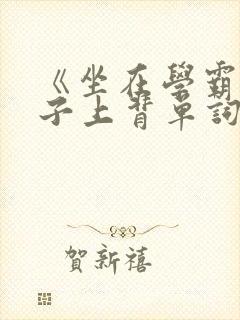 《坐在學霸
子上背單詞
賀新禧